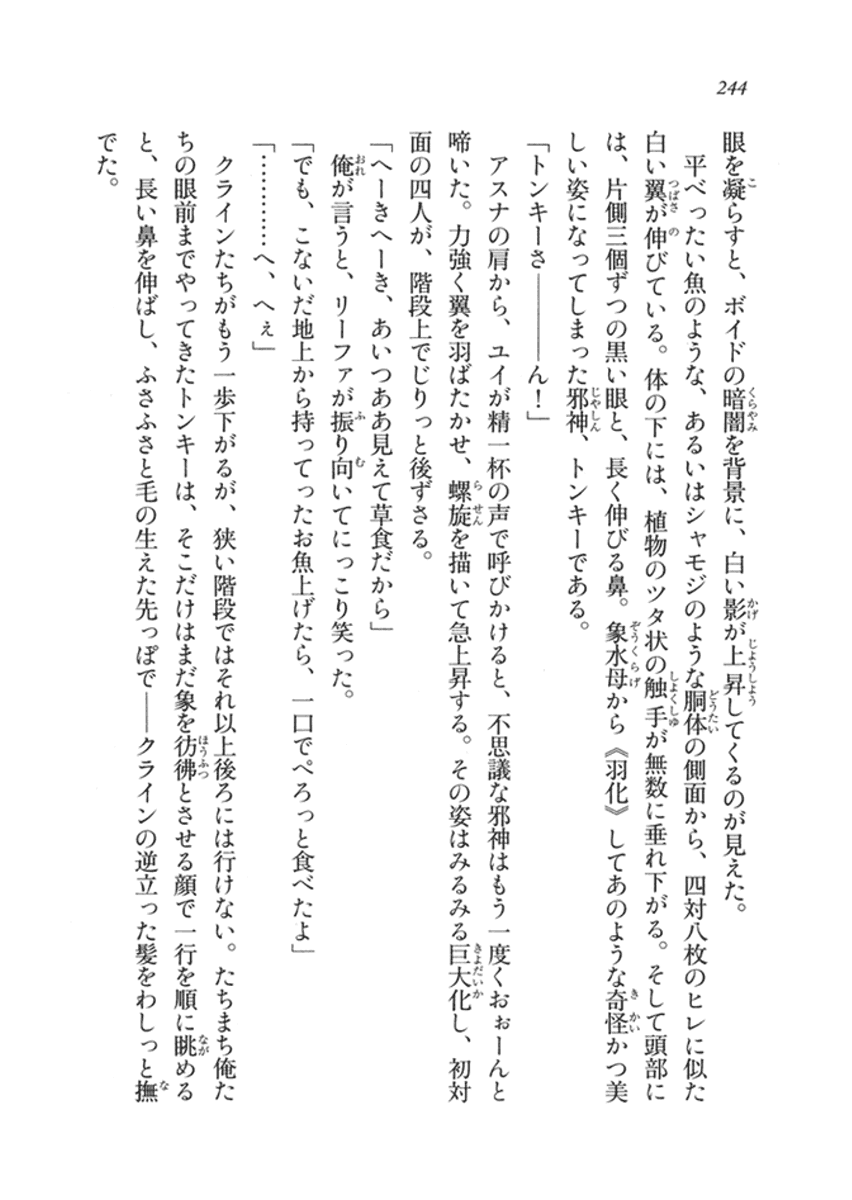 244
眼を凝らすと、ボイドの暗闇を背景に、白い影が上昇してくるのが見えた。
　平べったい魚のような、あるいはシャモジのような胴体の側面から、四対八枚のヒレに似た
白い翼が伸びている。体の下には、植物のツタ状の触手が無数に垂れ下がる。そして頭部に
は、片側三個ずつの黒い眼と、長く伸びる鼻。象水母から《羽化》してあのような奇怪かつ美
しい姿になってしまった邪神、トンキーである。
「トンキーさ————ん！」
　アスナの肩から、ユイが精一杯の声で呼びかけると、不思議な邪神はもう一度くおぉーんと
啼いた。力強く翼を羽ばたかせ、螺旋を描いて急上昇する。その姿はみるみる巨大化し、初対
面の四人が、階段上でじりっと後ずさる。
「へーきへーき、あいつああ見えて草食だから」
　俺が言うと、リーファが振り向いてにっこり笑った。
「でも、こないだ地上から持ってったお魚上げたら、一口でぺろっと食べたよ」
「…………へ、へぇ」
　クラインたちがもう一歩下がるが、狭い階段ではそれ以上後ろには行けない。たちまち俺た
ちの眼前までやってきたトンキーは、そこだけはまだ象を彷彿とさせる顔で一行を順に眺める
と、長い鼻を伸ばし、ふさふさと毛の生えた先っぽで——クラインの逆立った髪をわしっと撫
でた。